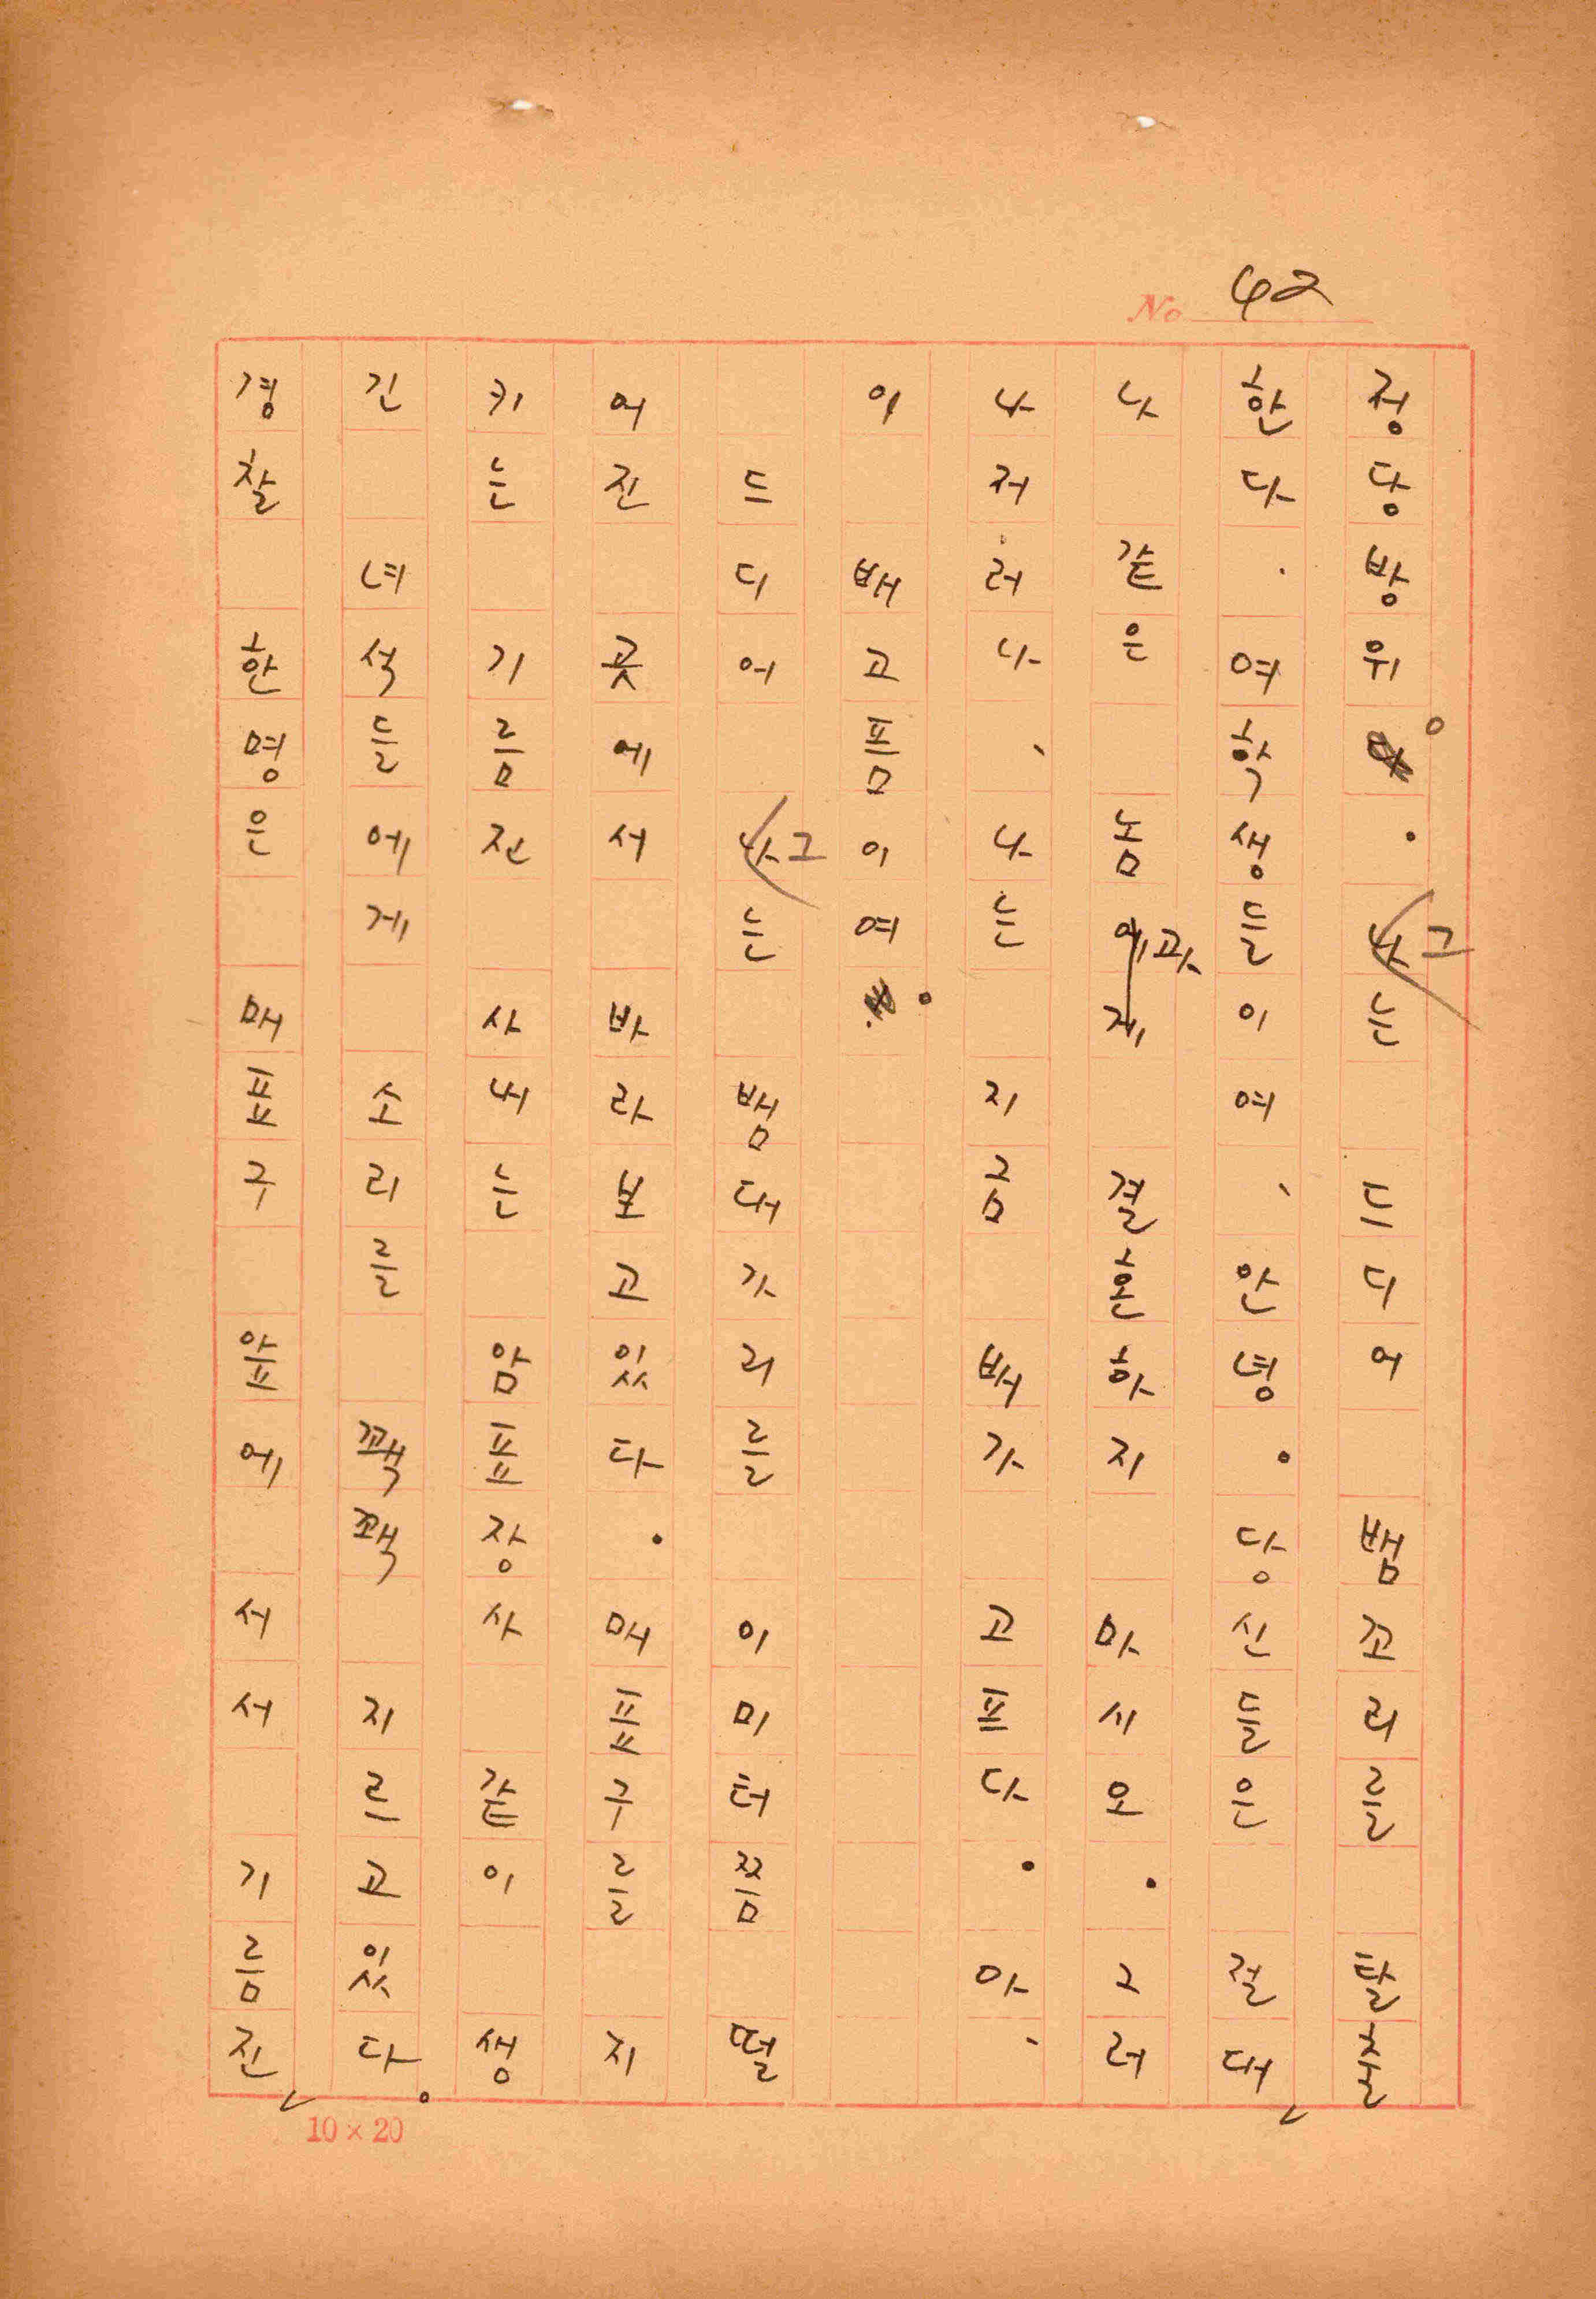 No 42
정당방위. 그는 드디어 뱀꼬리를 탈출
한다. 여학생들이여、안녕. 당신들은 절대
나 같은 놈과 결혼하지 마시오. 그러
나 저러나、나는 지금 배가 고프다. 아、
이 배고픔이여.
드디어 그는 뱀대가리를 이미터쯤 떨
어진 곳에서 바라보고있다. 매표구를 지
키는 기름진 사내는 암표장사 같이 생
긴 녀석들에게 소리를 꽥꽥 지르고있다.
경찰 한명은 매표구 앞에 서서 기름진
10×20